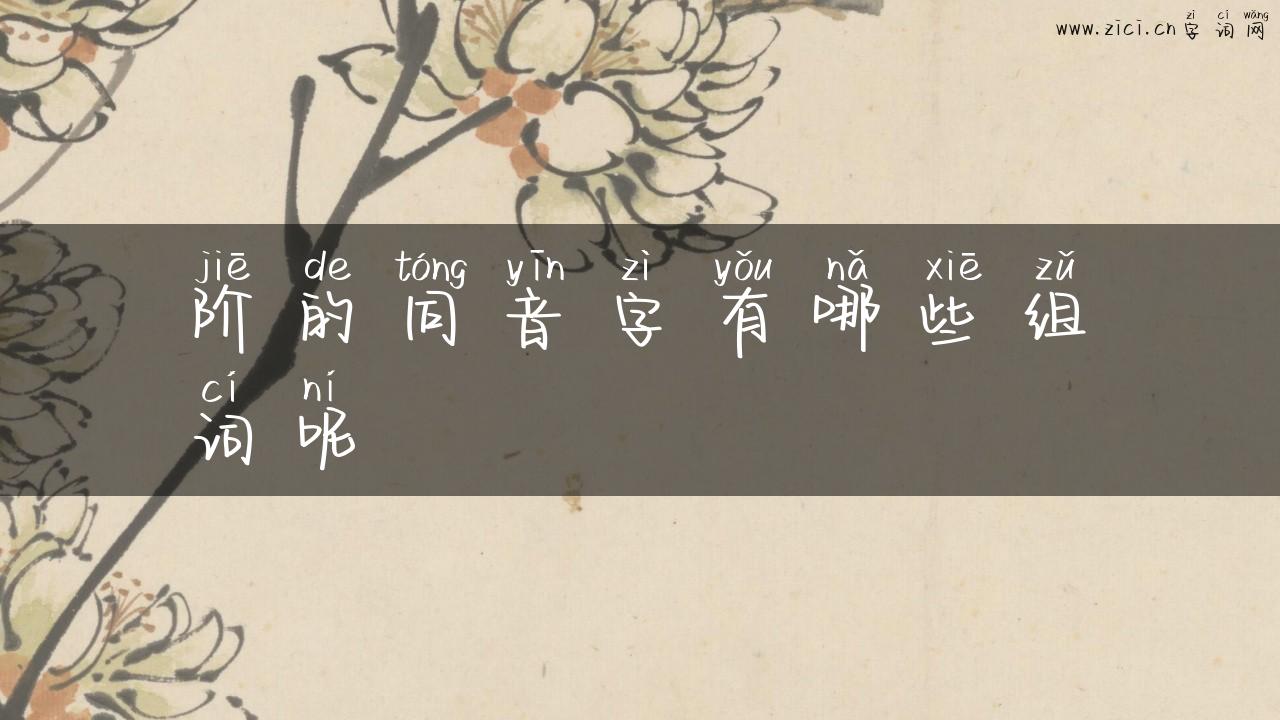 zì cí wǎng
www.zici.cn 字 词 网
jiē de tóng yīn zì yǒu nǎ xiē zǔ
阶 的 同 音 字 有 哪 些 组
cí ní
词 呢